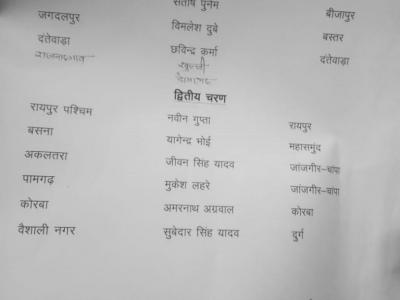 सतीष पुनेम बीजापुर
जगदलपुर विमलेश दुबे बस्तर
दंतेवाड़ा छविन्द्र कर्मा दंतेवाड़ा
द्वितीय चरण
रायपुर पश्चिम नवीन गुप्ता रायपुर
बसना यागेन्द्र भोई महासमुंद
अकलतरा जीवन सिंह यादव जांजगीर-चांपा
पामगढ़ मुकेश लहरे जांजगीर-चांपा
कोरबा अमरनाथ अग्रवाल कोरबा
वैशाली नगर सुबेदार सिंह यादव दुर्ग